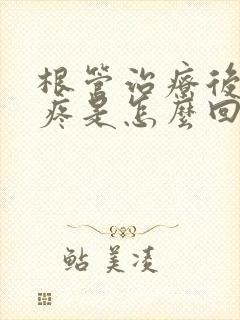 根管治療後
疼是怎麼回
鮎美凌